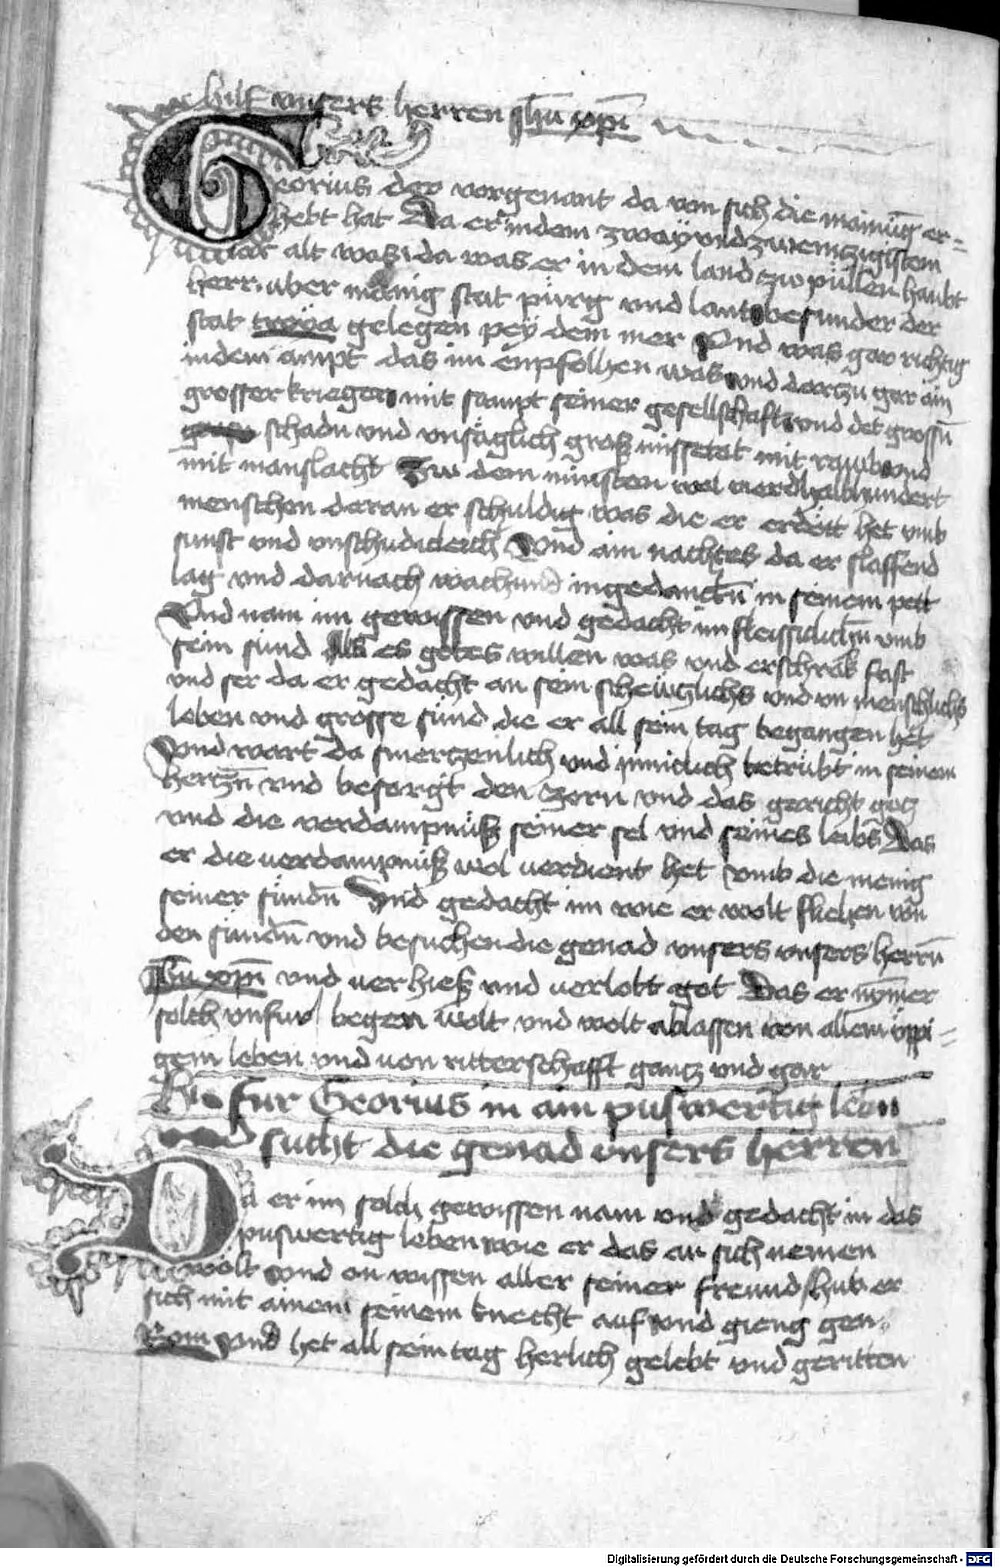 hilf unsers herren jhu xpi
Georius der vorgenant da von sich die mainu͂g er=
hebt hat Da er indem zway vnd zwenzigistem
Jar alt was da was er in dem land zw püllen haubt
herr vber mänig stat pürg vnd lant besunder der
stat troya gelegen pey dem mer Vnd was gar richtig
indem ampt das im enpfolhen was vnd darzu gar ain
grosser krieger mit sampt seiner gesellschafft vnd det grossn̄
schadn vnd vnsäglich groß missetat mit raub vnd
mit manslacht Zw dem minsten wol vierdhalbhundert
menschen daran er schuldig was die er erdött het vmb
sunst vnd vnschuldiclich Vnd ain nachtes da er slaffend
lag vnd darnach wachund ingedanckn̄ in seinem pett
Vnd nam im gewissen vnd gedacht im fleissiclichn̄ vmb
sein sünd Als es gotes willen was vnd erschrak fast
vnd ser da er gedacht an sein scheützlichs vnd vn menschlichs
leben vnd grosse sünd die er all sein tag begangen het
Vnd wart da smerczenlich vnd inniclich betrübt in seinem
herczn̄ vnd besorigt den zorn vnd das gericht gotz
vnd die verdampnüß seiner sel vnd seines leibs Das
er die verdampnüß wol verdient het vmb die menig
seiner sündn̄ Vnd gedacht im wie er wolt fliehen von
den sündn̄ vnd besuchen die genad vnsers vnsers herrn̄
Jhu xpi vnd verhieß vnd verlobt got Das er nymer
solch vnfur begen wolt vnd wolt ablassen von allem üppi=
gem leben vnd von ritterschafft gantz vnd gar
Hie fur Georius in ain puswertig lebn
vnd sucht die genad vnsers herren
Da er im solch gewissen nam vnd gedacht in das
puswertig leben wie er das an sich nemen
wolt vnd on wissen aller seiner freund hub er
sich mit ainem seinem knecht auf vnd gieng gen
Rom vnd het all sein tag herlich gelebt vnd geritten
Digitalisierung gefördert durch die Deutsche Forschungsgemeinschaft - DFG